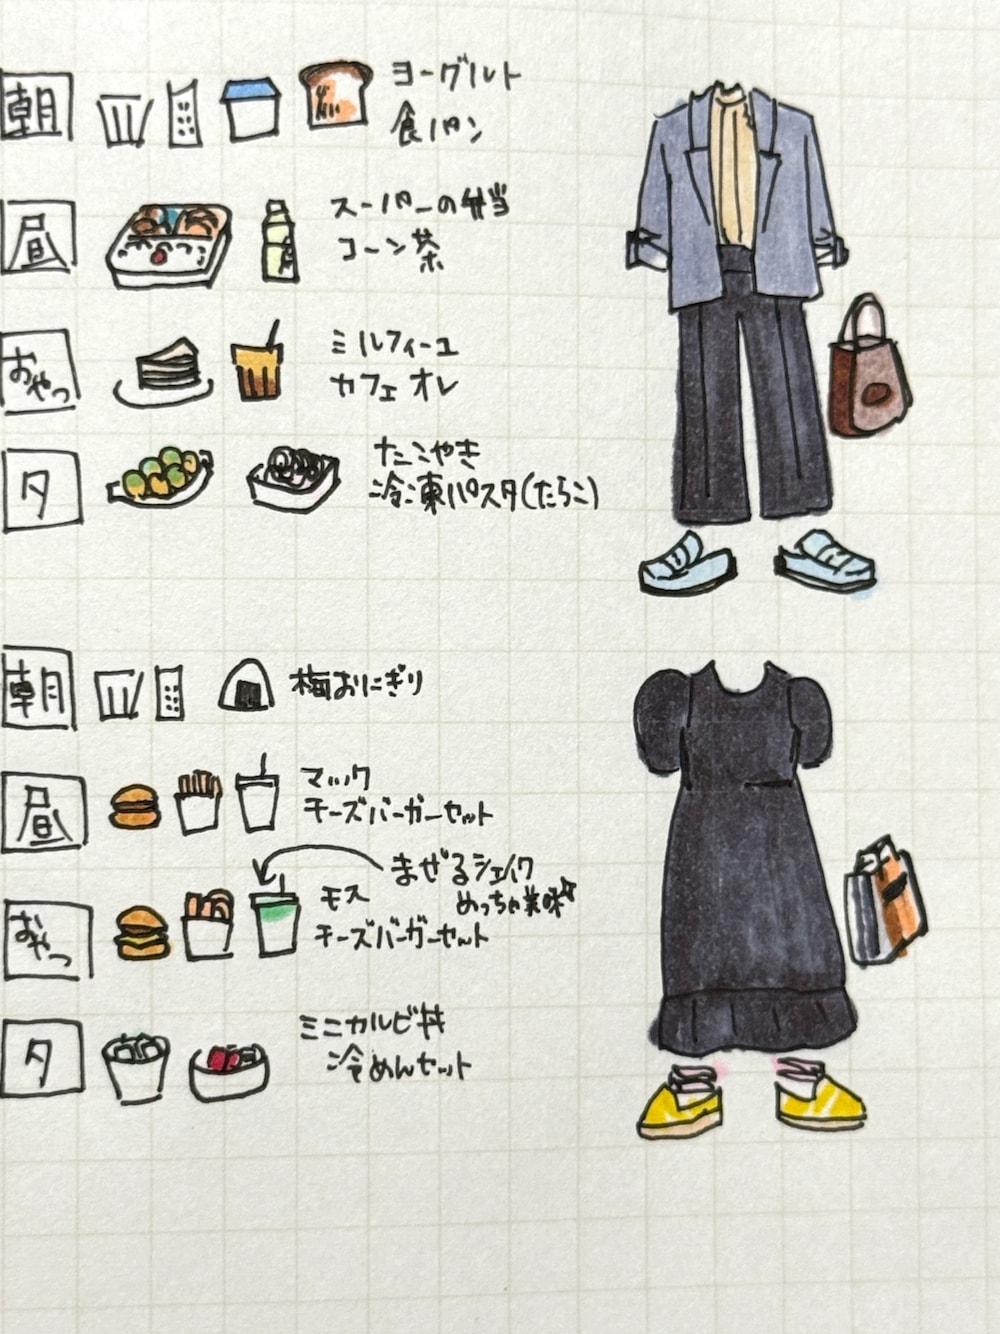 朝
ヨーグルト
食パン
昼
スーパーの弁当
コーン茶
おやつ
ミルフィーユ
カフェオレ
夕
たこやき
冷凍パスタ(たらこ)
朝
梅おにぎり
昼
マック
チーズバーガーセット
おやつ
まぜるシェイク
めっちゃ美味
モス
チーズバーガーセット
夕
ミニカルビ丼
冷めんセット